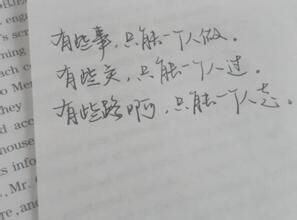 有些事,只能一个人做。
有些关,只能一个人过。
有些路啊,只能一个人走。
each
they
house
info
, Mr.
, and